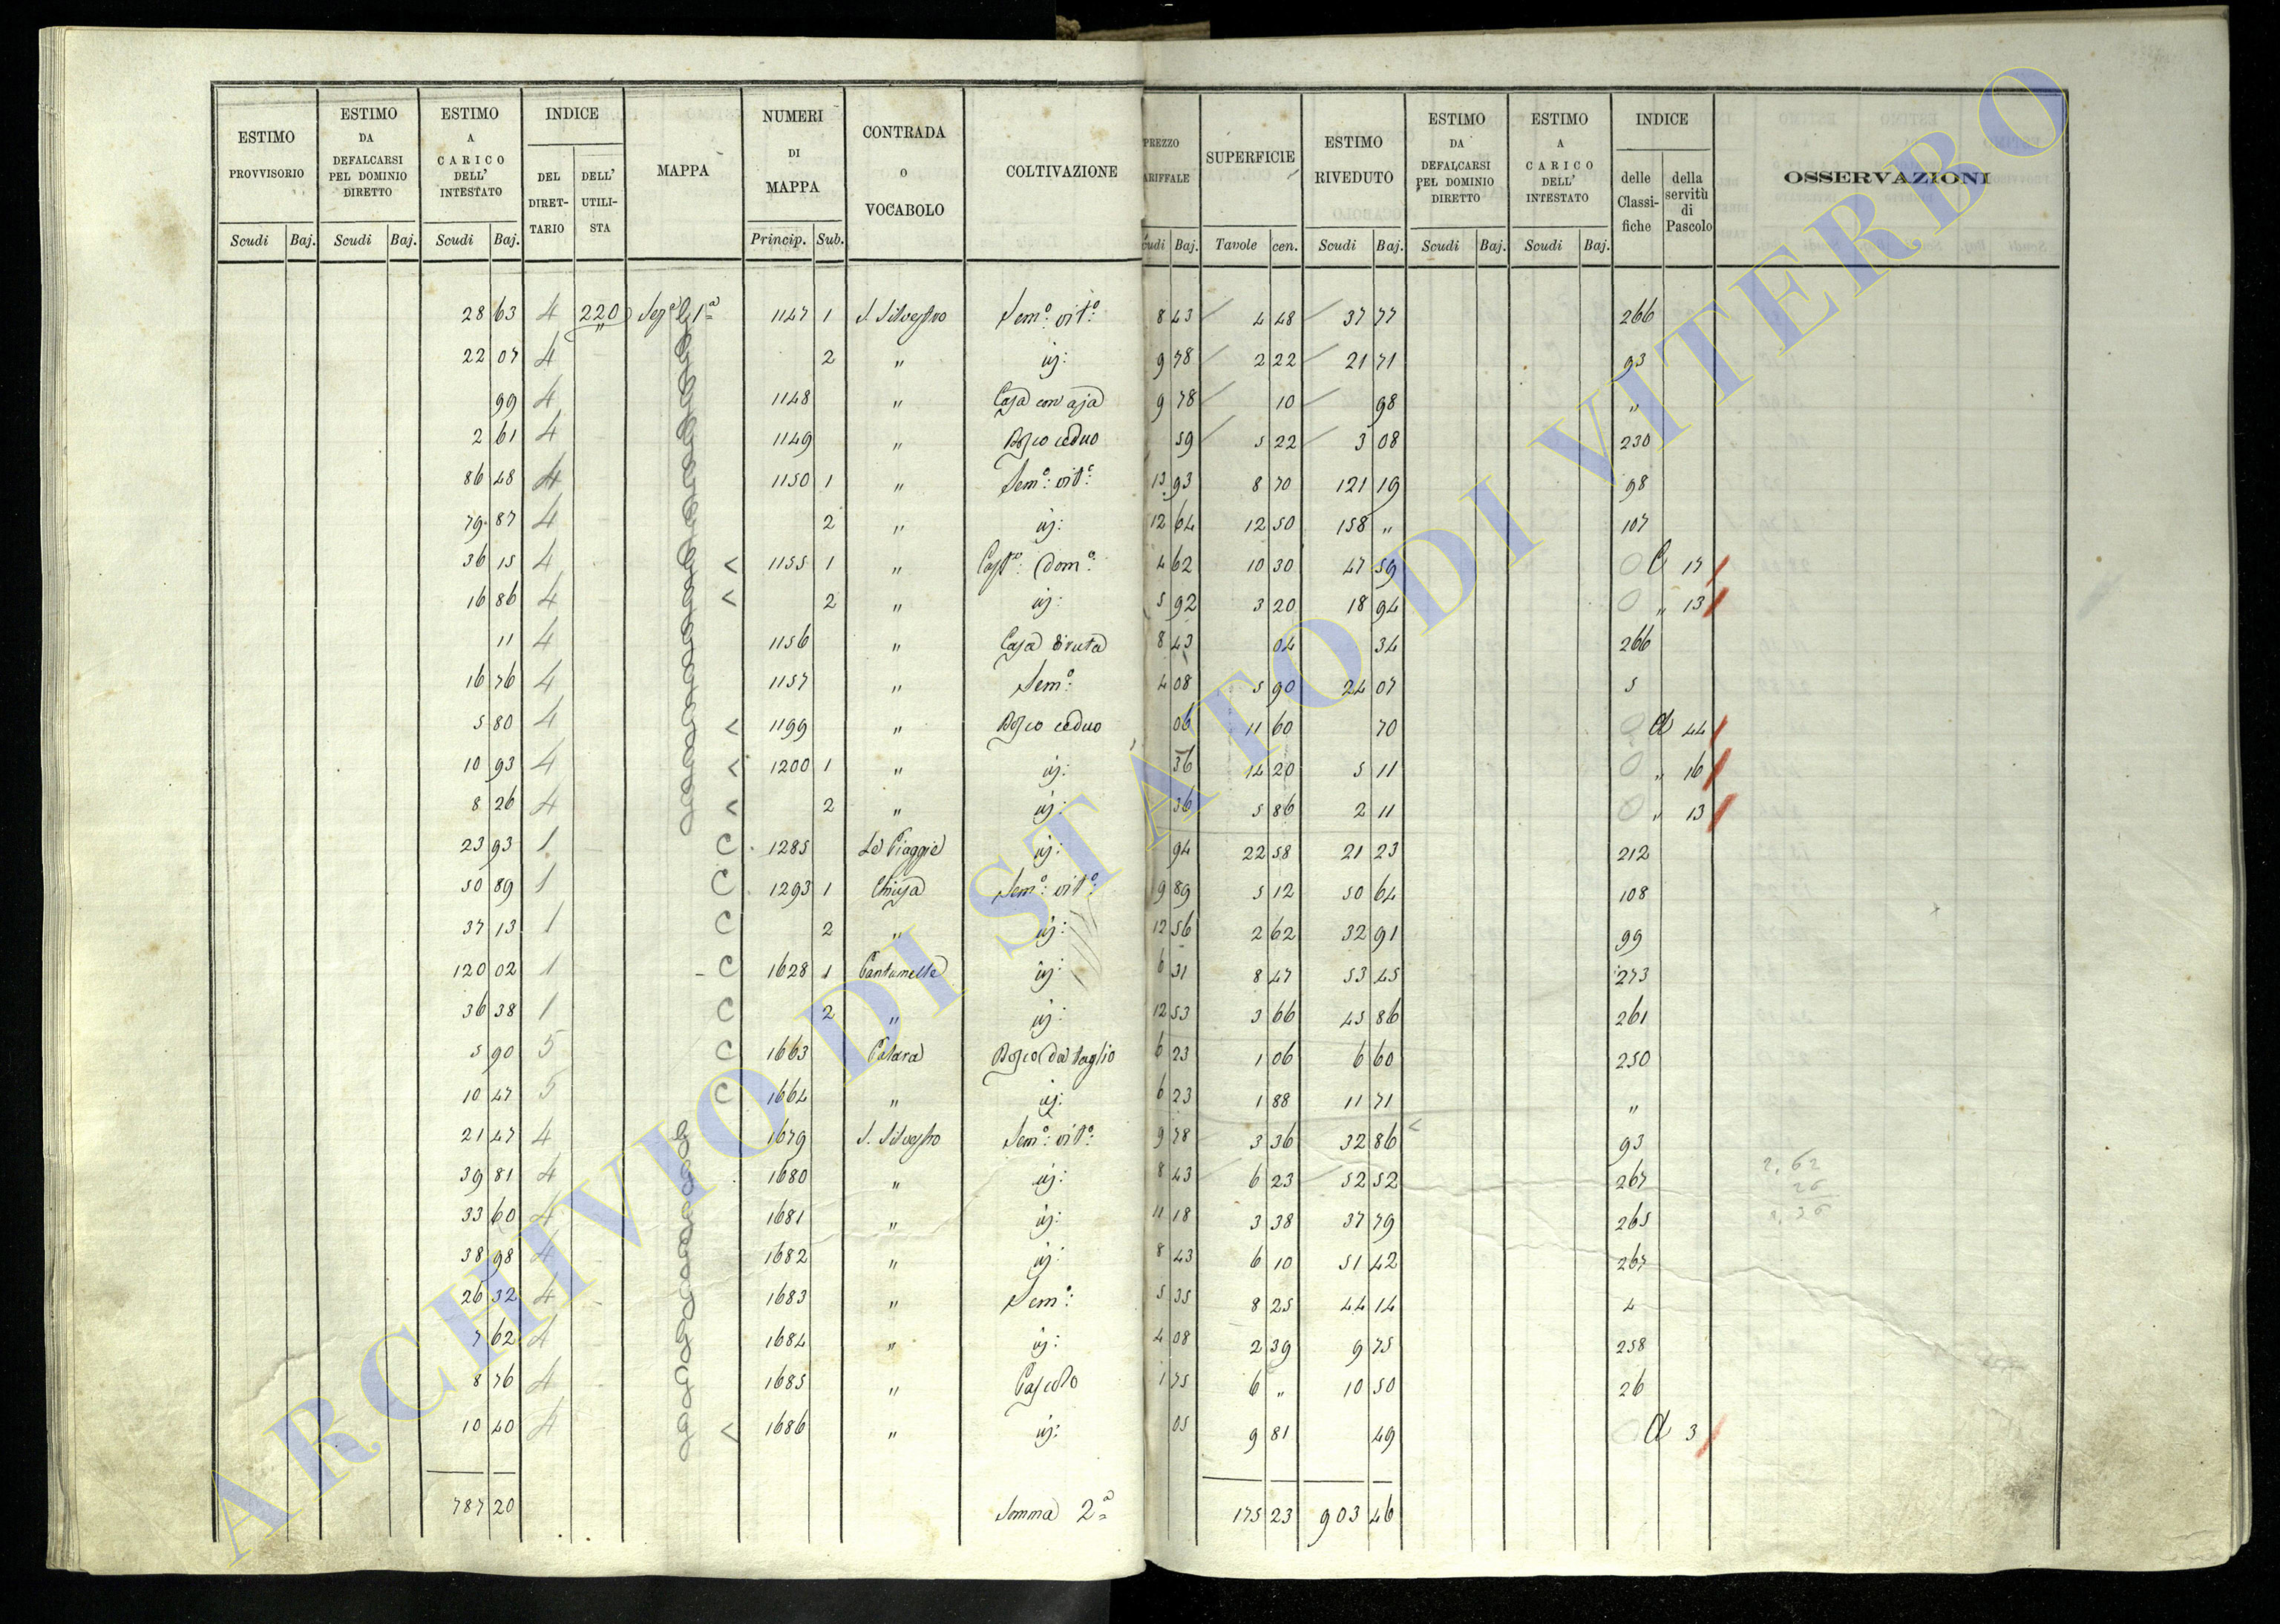 ESTIMO PROVVISORIO | ESTIMO DA DEFALCARSI PEL DOMINIO DIRETTO | ESTIMO A CARICO DELL' INTESTATO | INDICE | MAPPA | NUMERI DI MAPPA | CONTRADA O VOCABOLO | COLTIVAZIONE | PREZZO ARIFFALE | SUPERFICIE | ESTIMO RIVEDUTO | ESTIMO DA DEFALCARSI PEL DOMINIO DIRETTO | ESTIMO A CARICO DELL' INTESTATO | INDICE | OSSERVAZIONI
DEL DIRET-TARIO | DELL' UTILI-STA | delle Classi-fiche | della servitù di Pascolo
Scudi | Baj. | Scudi | Baj. | Scudi | Baj. | Princip. | Sub. | udi | Baj. | Tavole | cen. | Scudi | Baj. | Scudi | Baj. | Scudi | Baj.
28 63 4 220 Sezᵉ 1ª 1147 1 S. Silvestro Semº: vitº: 8 43 4 48 37 77 266
22 07 4 2 " id: 9 78 2 22 21 71 93
99 4 1148 " Casa con aja 9 78 10 98 "
2 61 4 1149 " Bosco ceduo 59 5 22 3 08 230
86 48 4 1150 1 " Semº: vitº: 13 93 8 70 121 19 98
79 87 4 2 " id: 12 64 12 50 158 " 107
36 15 4 < 1155 1 " Castº: domº: 4 62 10 30 47 59 0 C 17
16 86 4 < 2 " id: 5 92 3 20 18 94 0 " 13
11 4 1156 " Casa diruta 8 43 04 34 266
16 76 4 1157 " Semº: 4 08 5 90 24 07 5
5 80 4 < 1199 " Bosco ceduo 06 11 60 70 0 d 44
10 93 4 < 1200 1 " id: 36 14 20 5 11 0 " 16
8 26 4 < 2 " id: 36 5 86 2 11 0 " 13
23 93 1 C 1285 Le Piaggie id: 94 22 58 21 23 212
50 89 1 C 1293 1 Chiusa Semº: vitº: 9 89 5 12 50 64 108
37 13 1 C 2 " id: 12 56 2 62 32 91 99
120 02 1 C 1628 1 id: 6 31 8 47 53 45 273
36 38 1 C 2 " id: 12 53 3 66 45 86 261
5 90 5 C 1663 Bosco da taglio 6 23 1 06 6 60 250
10 47 5 C 1664 " id: 6 23 1 88 11 71 "
21 47 4 1679 S. Silvestro Semº: vitº: 9 78 3 36 32 86 < 93
39 81 4 1680 " id: 8 43 6 23 52 52 267
33 60 4 1681 " id: 11 18 3 38 37 79 265
38 98 4 1682 " id: 8 43 6 10 51 42 267
26 32 4 1683 " Semº: 5 35 8 25 44 14 4
7 62 4 1684 " id: 4 08 2 39 9 75 258
8 76 4 1685 " Pascolo 1 75 6 " 10 50 26
10 40 4 < 1686 " id: 05 9 81 49 d 3
787 20 Somma 2ª 175 23 903 46
ARCHIVIO DI STATO DI VITERBO